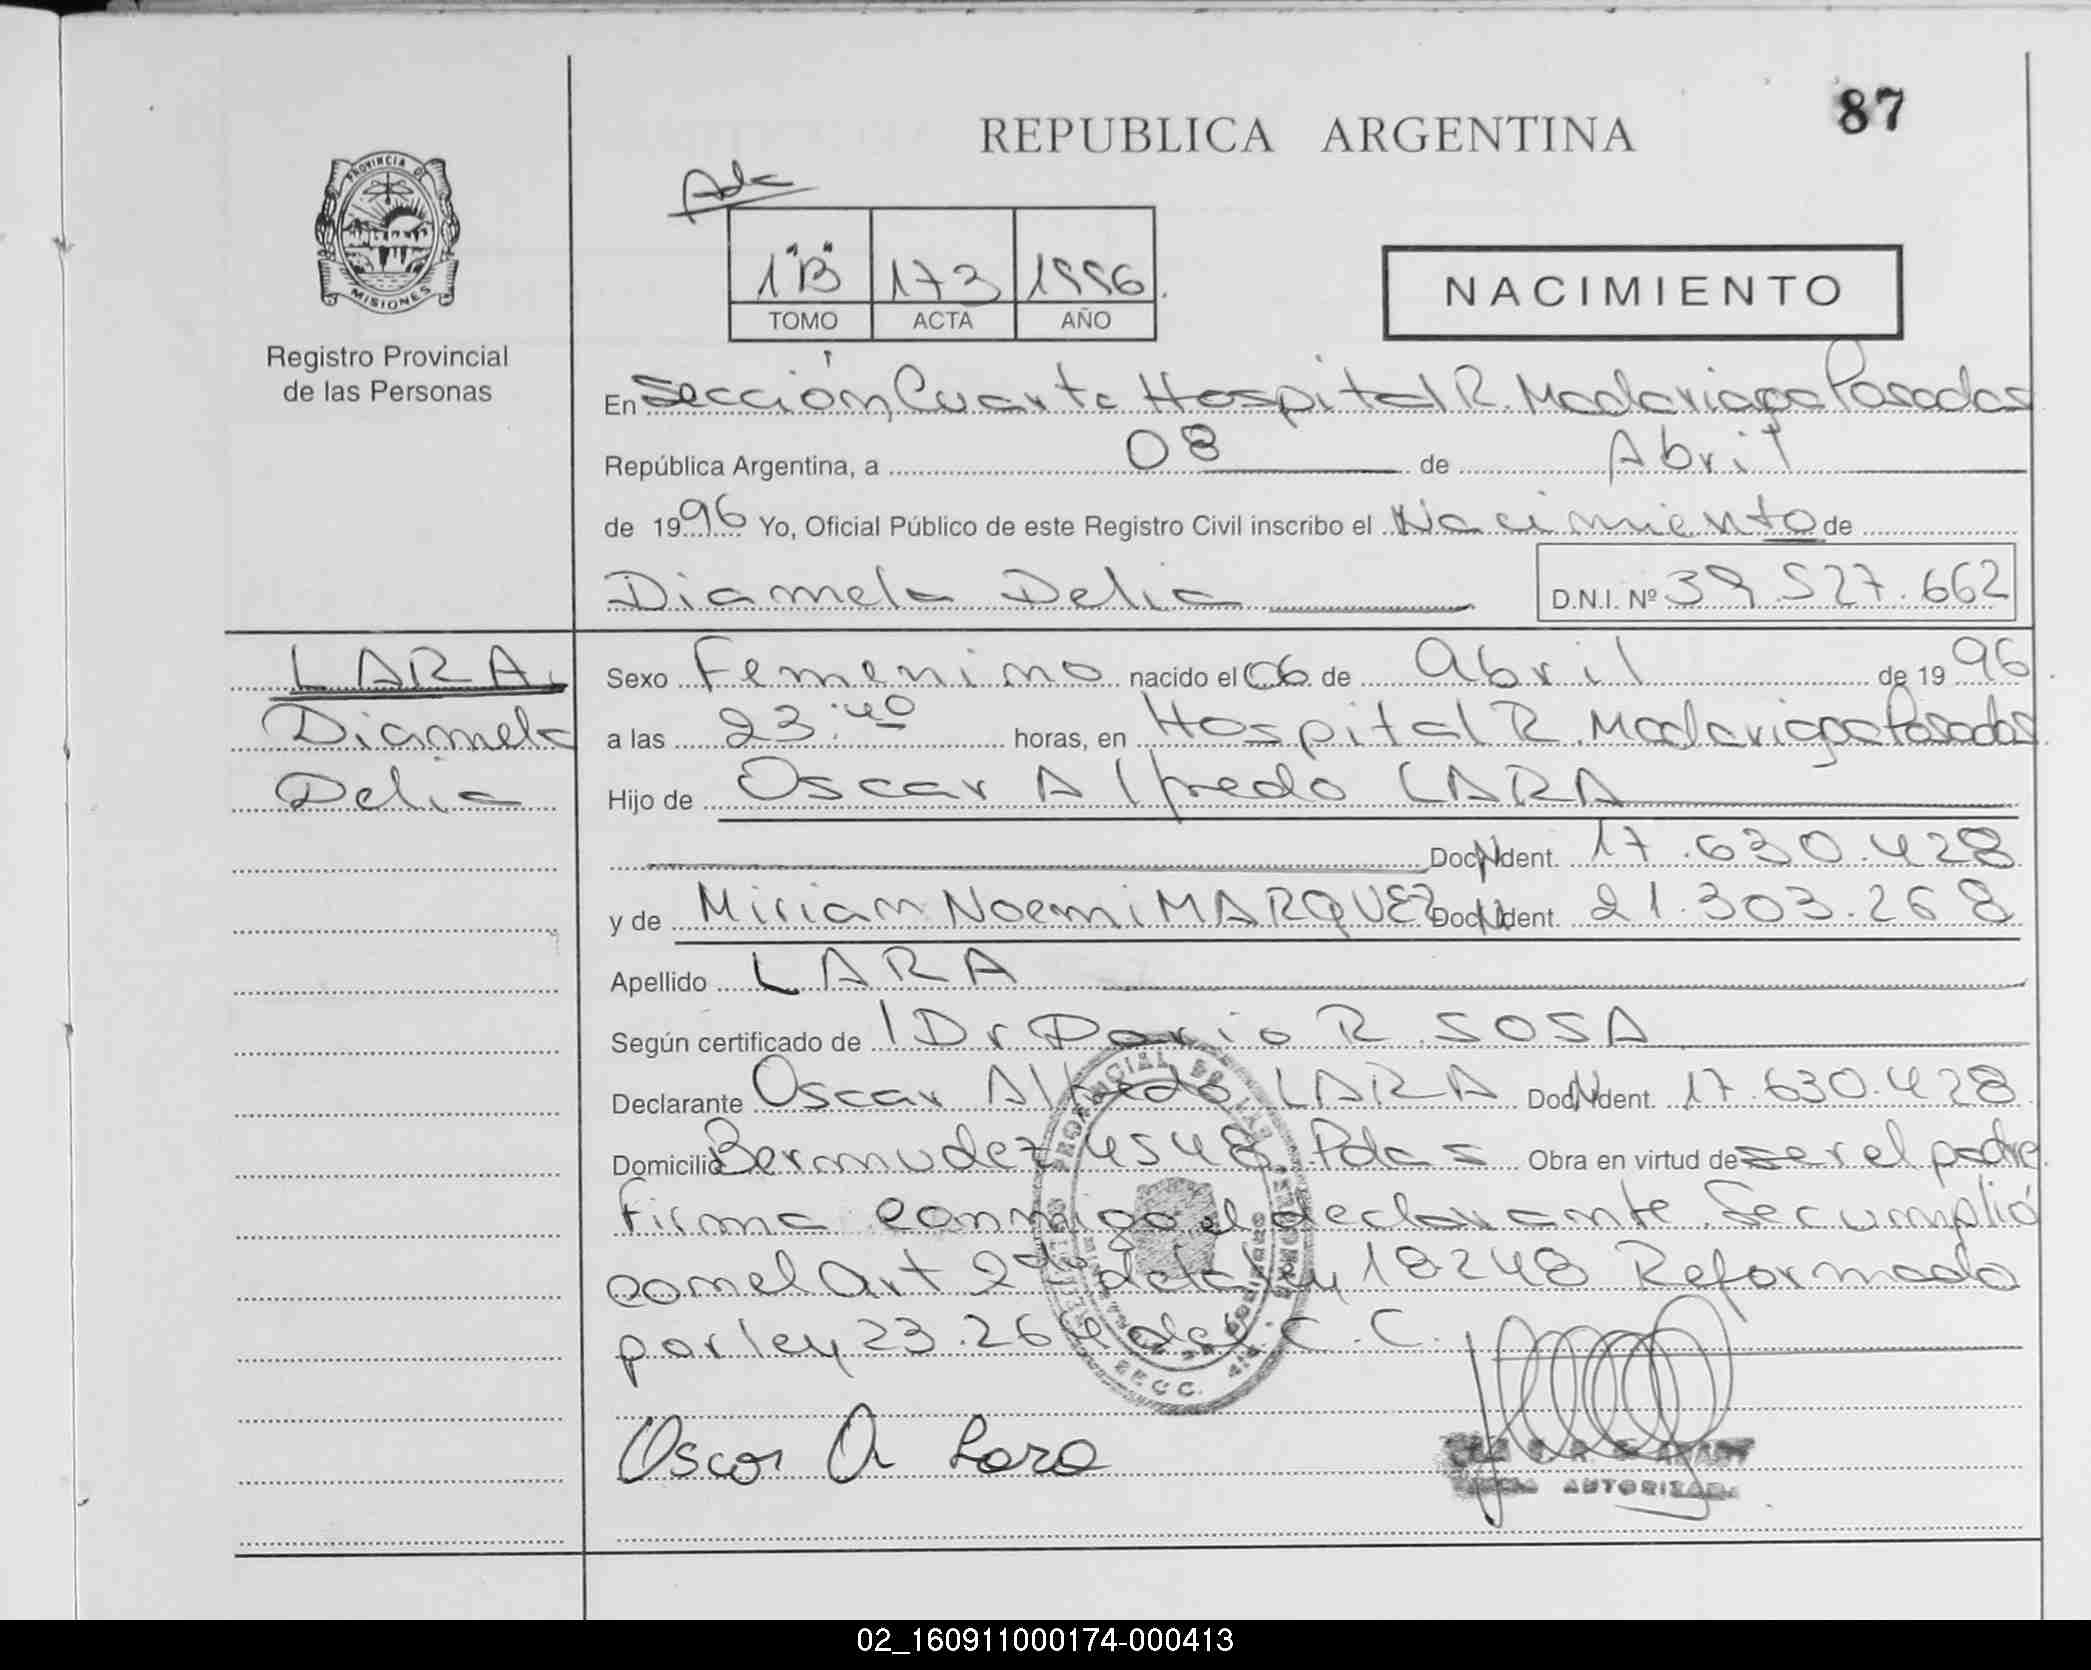 87
REPUBLICA ARGENTINA
PROVINCIA DE
MISIONES
Registro Provincial
de las Personas
1"B" 173 1996
TOMO ACTA AÑO
NACIMIENTO
En Sección Cuarta Hospital R. Madariaga Posadas
República Argentina, a 08 de Abril
de 1996 Yo, Oficial Público de este Registro Civil inscribo el Nacimiento de
Diamela Delia D.N.I. Nº 39.527.662
LARA
Diamela
Delia
Sexo Femenino nacido el 06 de Abril de 1996
a las 23:40 horas, en Hospital R. Madariaga Posadas
Hijo de Oscar Alfredo LARA
Doc. Ident. 17.630.428
y de Miriam Noemi MARQUEZ Doc. Ident. 21.303.268
Apellido LARA
Según certificado de Dr Dario R. SOSA
Declarante Oscar Alfredo LARA Doc. Ident. 17.630.428
Domicilio Bermudez 4548 Pdas Obra en virtud de ser el padre
Firma conmigo el declarante. Se cumplió
con el Art 2do de la ley 18248 Reformado
por ley 23.264 del C.C.
Oscar A Lara
AUTORIZADA
02_160911000174-000413